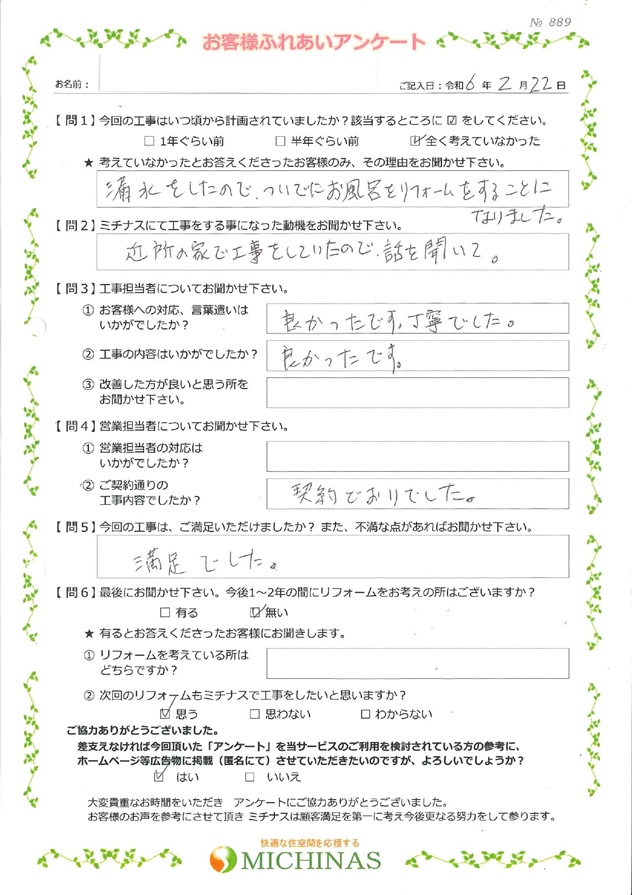 № 889
お客様ふれあいアンケート
お名前： ご記入日：令和 6 年 2 月 22 日
【問1】今回の工事はいつ頃から計画されていましたか？該当するところに ☑ をしてください。
□ 1年ぐらい前 □ 半年ぐらい前 ☑ 全く考えていなかった
★ 考えていなかったとお答えくださったお客様のみ、その理由をお聞かせ下さい。
漏水をしたので、ついでにお風呂をリフォームをすることに
なりました。
【問2】ミチナスにて工事をする事になった動機をお聞かせ下さい。
近所の家で工事をしていたので、話を聞いて。
【問3】工事担当者についてお聞かせ下さい。
① お客様への対応、言葉遣いは
いかがでしたか？
良かったです。丁寧でした。
② 工事の内容はいかがでしたか？
良かったです。
③ 改善した方が良いと思う所を
お聞かせ下さい。
【問4】営業担当者についてお聞かせ下さい。
① 営業担当者の対応は
いかがでしたか？
② ご契約通りの
工事内容でしたか？
契約どおりでした。
【問5】今回の工事は、ご満足いただけましたか？ また、不満な点があればお聞かせ下さい。
満足でした。
【問6】最後にお聞かせ下さい。今後1～2年の間にリフォームをお考えの所はございますか？
□ 有る ☑ 無い
★ 有るとお答えくださったお客様にお聞きします。
① リフォームを考えている所は
どちらですか？
② 次回のリフォームもミチナスで工事をしたいと思いますか？
☑ 思う □ 思わない □ わからない
ご協力ありがとうございました。
差支えなければ今回頂いた「アンケート」を当サービスのご利用を検討されている方の参考に、
ホームページ等広告物に掲載（匿名にて）させていただきたいのですが、よろしいでしょうか？
☑ はい □ いいえ
大変貴重なお時間をいただき アンケートにご協力ありがとうございました。
お客様のお声を参考にさせて頂き ミチナスは顧客満足を第一に考え今後更なる努力をして参ります。
快適な住空間を応援する
MICHINAS